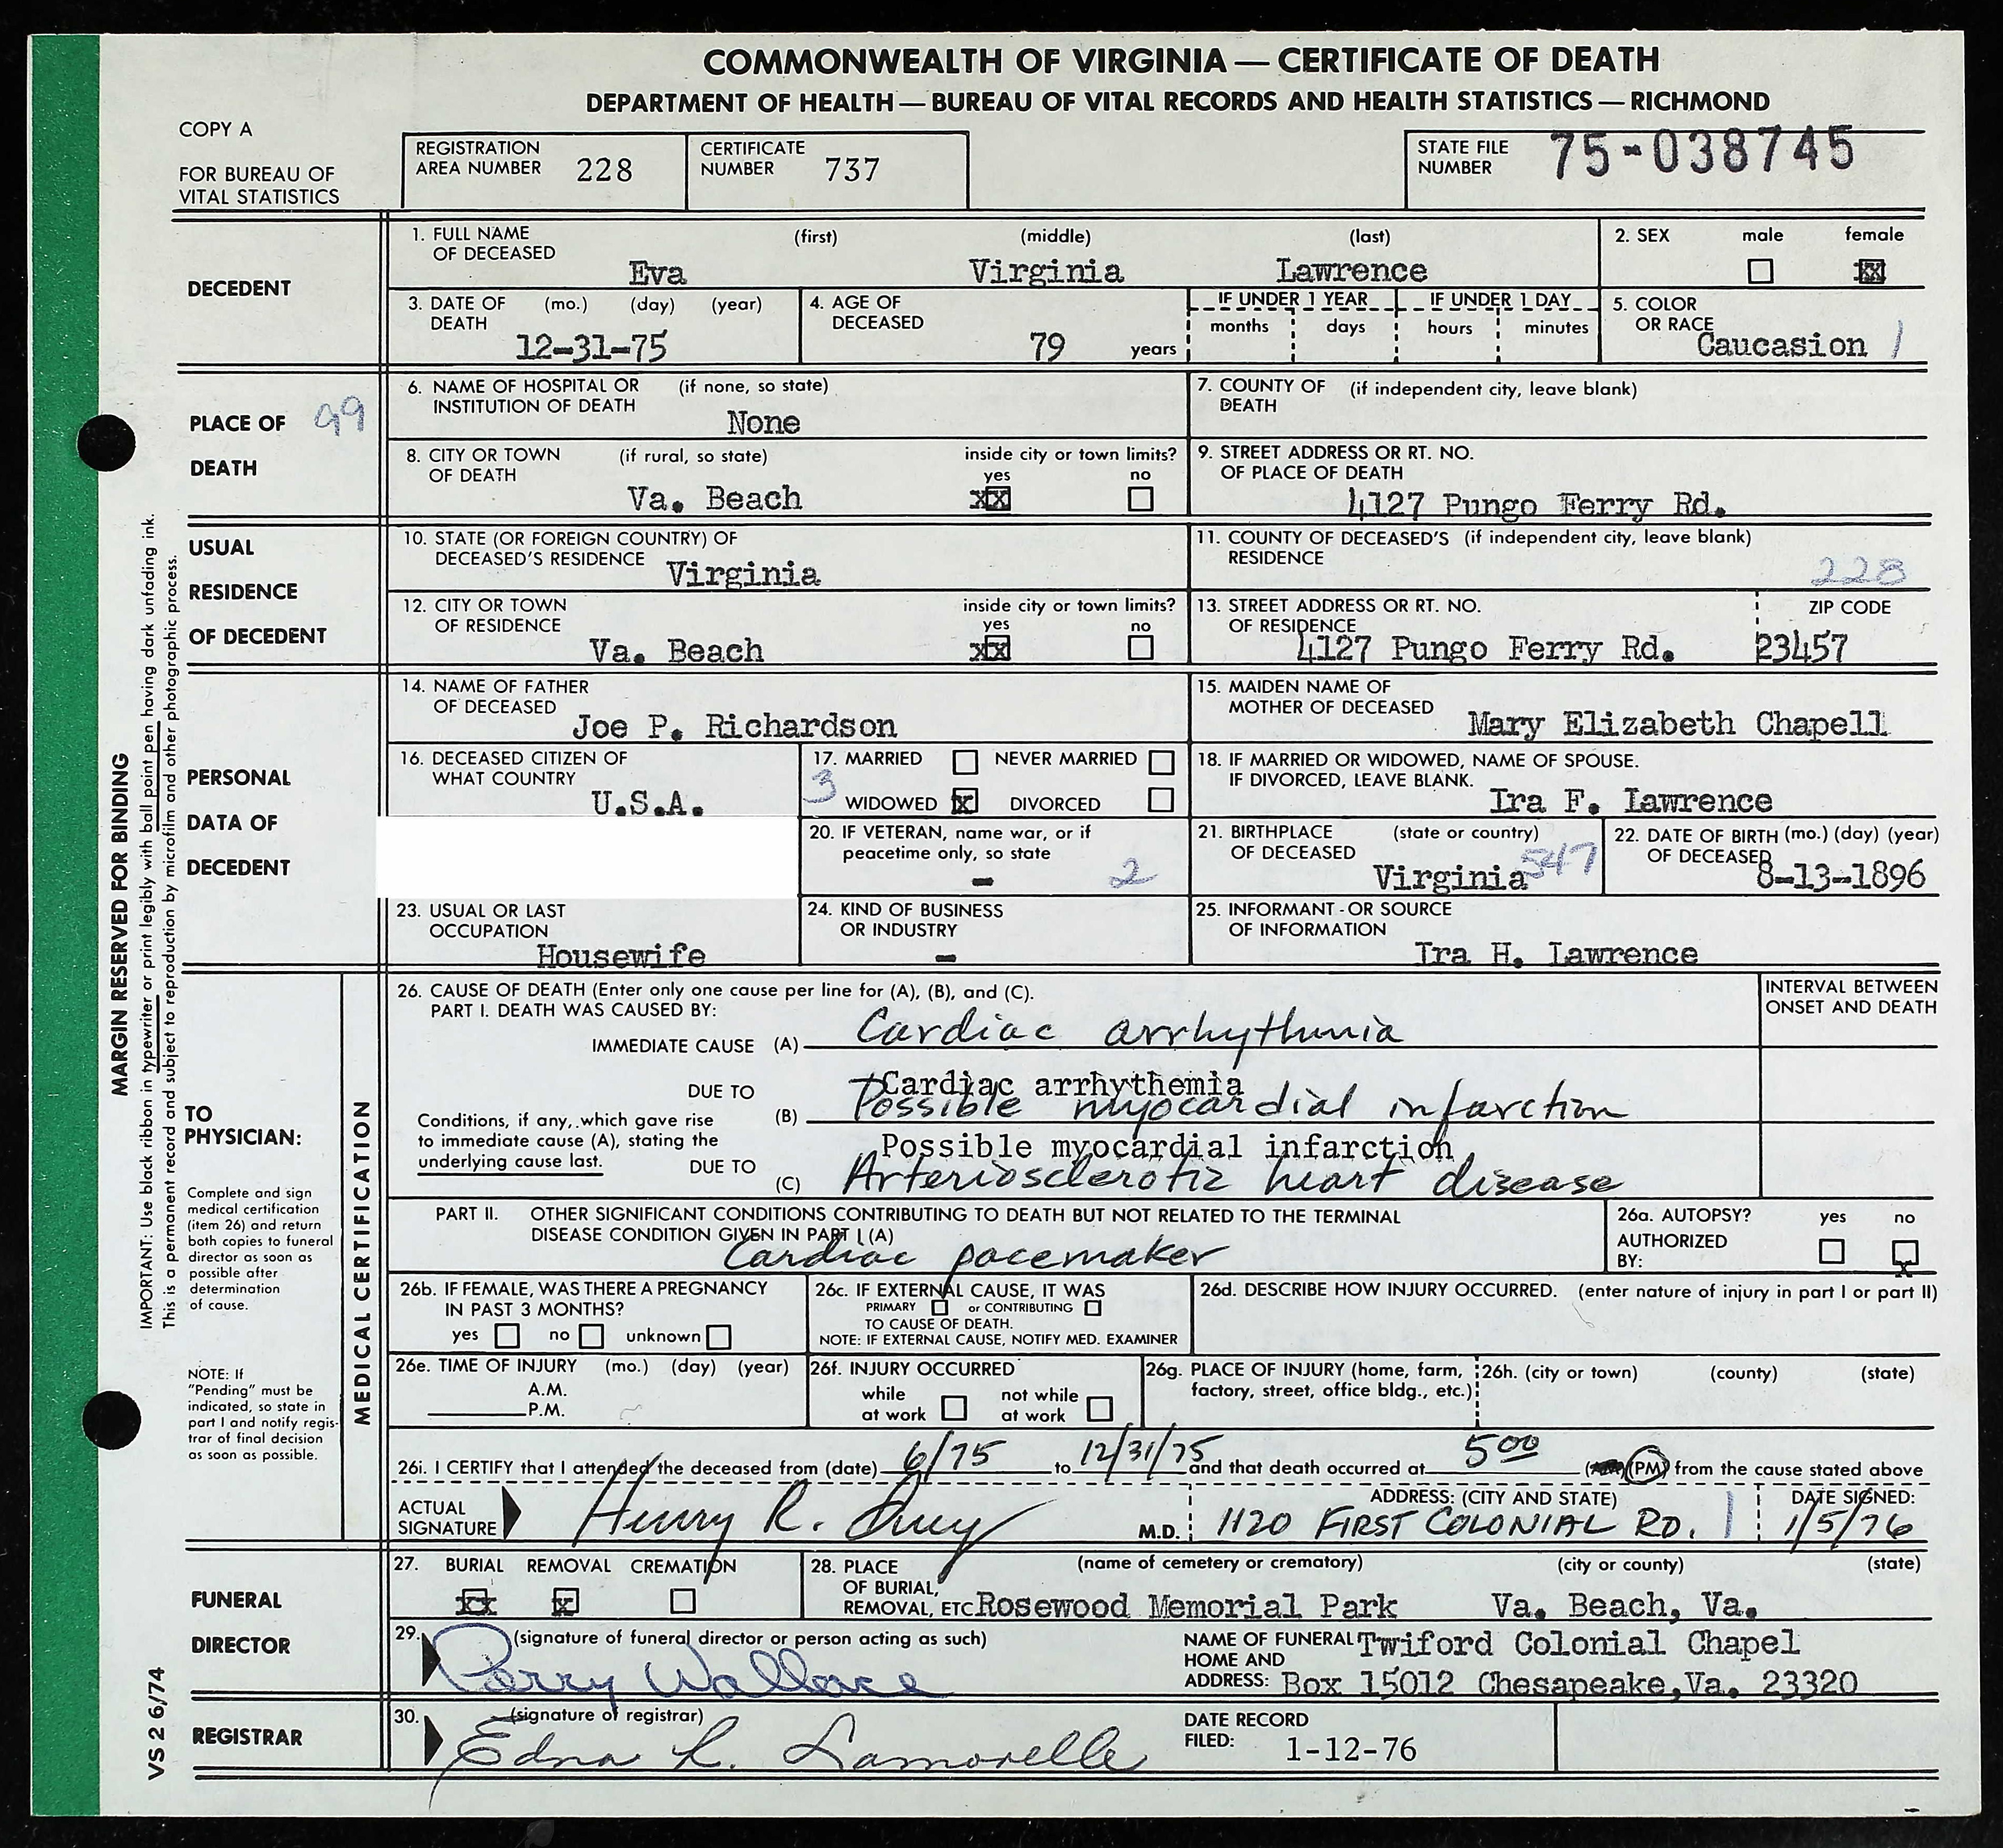 COMMONWEALTH OF VIRGINIA — CERTIFICATE OF DEATH
DEPARTMENT OF HEALTH — BUREAU OF VITAL RECORDS AND HEALTH STATISTICS — RICHMOND
COPY A
FOR BUREAU OF
VITAL STATISTICS
REGISTRATION
AREA NUMBER 228
CERTIFICATE
NUMBER 737
STATE FILE
NUMBER 75-038745
DECEDENT
1. FULL NAME (first) (middle) (last)
OF DECEASED
Eva Virginia Lawrence
2. SEX male female
xx
3. DATE OF (mo.) (day) (year)
DEATH
12-31-75
4. AGE OF
DECEASED
79 years
IF UNDER 1 YEAR IF UNDER 1 DAY
months days hours minutes
5. COLOR
OR RACE
Caucasion 1
PLACE OF 99
DEATH
6. NAME OF HOSPITAL OR (if none, so state)
INSTITUTION OF DEATH
None
7. COUNTY OF (if independent city, leave blank)
DEATH
8. CITY OR TOWN (if rural, so state) inside city or town limits?
OF DEATH yes no
Va. Beach xx
9. STREET ADDRESS OR RT. NO.
OF PLACE OF DEATH
4127 Pungo Ferry Rd.
USUAL
RESIDENCE
OF DECEDENT
10. STATE (OR FOREIGN COUNTRY) OF
DECEASED'S RESIDENCE Virginia
11. COUNTY OF DECEASED'S (if independent city, leave blank)
RESIDENCE
228
12. CITY OR TOWN inside city or town limits?
OF RESIDENCE yes no
Va. Beach xx
13. STREET ADDRESS OR RT. NO. ZIP CODE
OF RESIDENCE
4127 Pungo Ferry Rd. 23457
PERSONAL
DATA OF
DECEDENT
14. NAME OF FATHER
OF DECEASED
Joe P. Richardson
15. MAIDEN NAME OF
MOTHER OF DECEASED
Mary Elizabeth Chapell
16. DECEASED CITIZEN OF
WHAT COUNTRY
U.S.A.
17. MARRIED NEVER MARRIED
3 WIDOWED x DIVORCED
18. IF MARRIED OR WIDOWED, NAME OF SPOUSE.
IF DIVORCED, LEAVE BLANK.
Ira F. Lawrence
20. IF VETERAN, name war, or if
peacetime only, so state
- 2
21. BIRTHPLACE (state or country)
OF DECEASED
Virginia 547
22. DATE OF BIRTH (mo.) (day) (year)
OF DECEASED
8-13-1896
23. USUAL OR LAST
OCCUPATION
Housewife
24. KIND OF BUSINESS
OR INDUSTRY
-
25. INFORMANT - OR SOURCE
OF INFORMATION
Ira H. Lawrence
MARGIN RESERVED FOR BINDING
IMPORTANT: Use black ribbon in typewriter or print legibly with ball point pen having dark unfading ink.
This is a permanent record and subject to reproduction by microfilm and other photographic process.
TO
PHYSICIAN:
Complete and sign
medical certification
(item 26) and return
both copies to funeral
director as soon as
possible after
determination
of cause.
NOTE: If
"Pending" must be
indicated, so state in
part I and notify regis-
trar of final decision
as soon as possible.
MEDICAL CERTIFICATION
26. CAUSE OF DEATH (Enter only one cause per line for (A), (B), and (C).
PART I. DEATH WAS CAUSED BY:
INTERVAL BETWEEN
ONSET AND DEATH
IMMEDIATE CAUSE (A) Cardiac arrhythmia
Cardiac arrhythemia
DUE TO
(B) Possible myocardial infarction
Conditions, if any, which gave rise
to immediate cause (A), stating the
underlying cause last.
Possible myocardial infarction
DUE TO
(C) Arteriosclerotic heart disease
PART II. OTHER SIGNIFICANT CONDITIONS CONTRIBUTING TO DEATH BUT NOT RELATED TO THE TERMINAL
DISEASE CONDITION GIVEN IN PART I (A)
Cardiac pacemaker
26a. AUTOPSY? yes no
AUTHORIZED
BY: x
26b. IF FEMALE, WAS THERE A PREGNANCY
IN PAST 3 MONTHS?
yes no unknown
26c. IF EXTERNAL CAUSE, IT WAS
PRIMARY or CONTRIBUTING
TO CAUSE OF DEATH.
NOTE: IF EXTERNAL CAUSE, NOTIFY MED. EXAMINER
26d. DESCRIBE HOW INJURY OCCURRED. (enter nature of injury in part I or part II)
26e. TIME OF INJURY (mo.) (day) (year)
A.M.
P.M.
26f. INJURY OCCURRED
while not while
at work at work
26g. PLACE OF INJURY (home, farm,
factory, street, office bldg., etc.)
26h. (city or town) (county) (state)
26i. I CERTIFY that I attended the deceased from (date) 6/75 to 12/31/75 and that death occurred at 5 00 (PM) from the cause stated above
ACTUAL
SIGNATURE Henry R. M.D.
ADDRESS: (CITY AND STATE)
1120 FIRST COLONIAL RD. 1
DATE SIGNED:
1/5/76
FUNERAL
DIRECTOR
27. BURIAL REMOVAL CREMATION
xx x
28. PLACE (name of cemetery or crematory) (city or county) (state)
OF BURIAL,
REMOVAL, ETC Rosewood Memorial Park Va. Beach, Va.
29. (signature of funeral director or person acting as such)
Perry Wallace
NAME OF FUNERAL Twiford Colonial Chapel
HOME AND
ADDRESS: Box 15012 Chesapeake,Va. 23320
REGISTRAR
30. (signature of registrar)
Edna R. Lamorelle
DATE RECORD
FILED: 1-12-76
VS 2 6/74